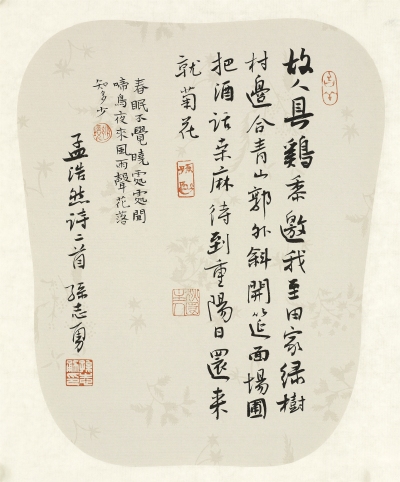 故人具鷄黍邀我至田家綠樹
村邊合青山郭外斜開筵面場圃
把酒話桒麻待到重陽日還來
就菊花
春眠不覺曉處處聞
啼鳥夜來風雨聲花落
知多少
孟浩然詩二首 孫志勇